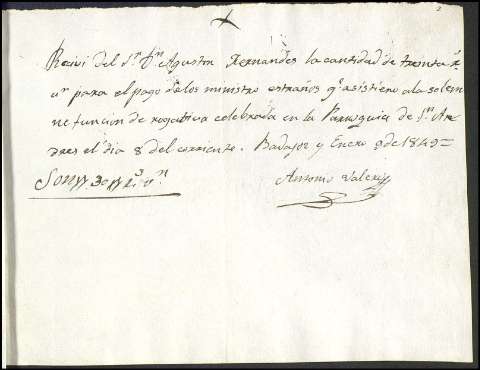 2
Recivi del S.r D.n Agustin Fernandes la cantidad de treinta r.s
v.n para el pago de los ministro estraños q.e asistieno ala solem
ne funcion de rogativa celebrada en la Parroquia de S.n An
dres el dia 8 del corriente. Badajoz y Enero 9 de 1849=
Son 30 r.s v.n
Antonio Valery